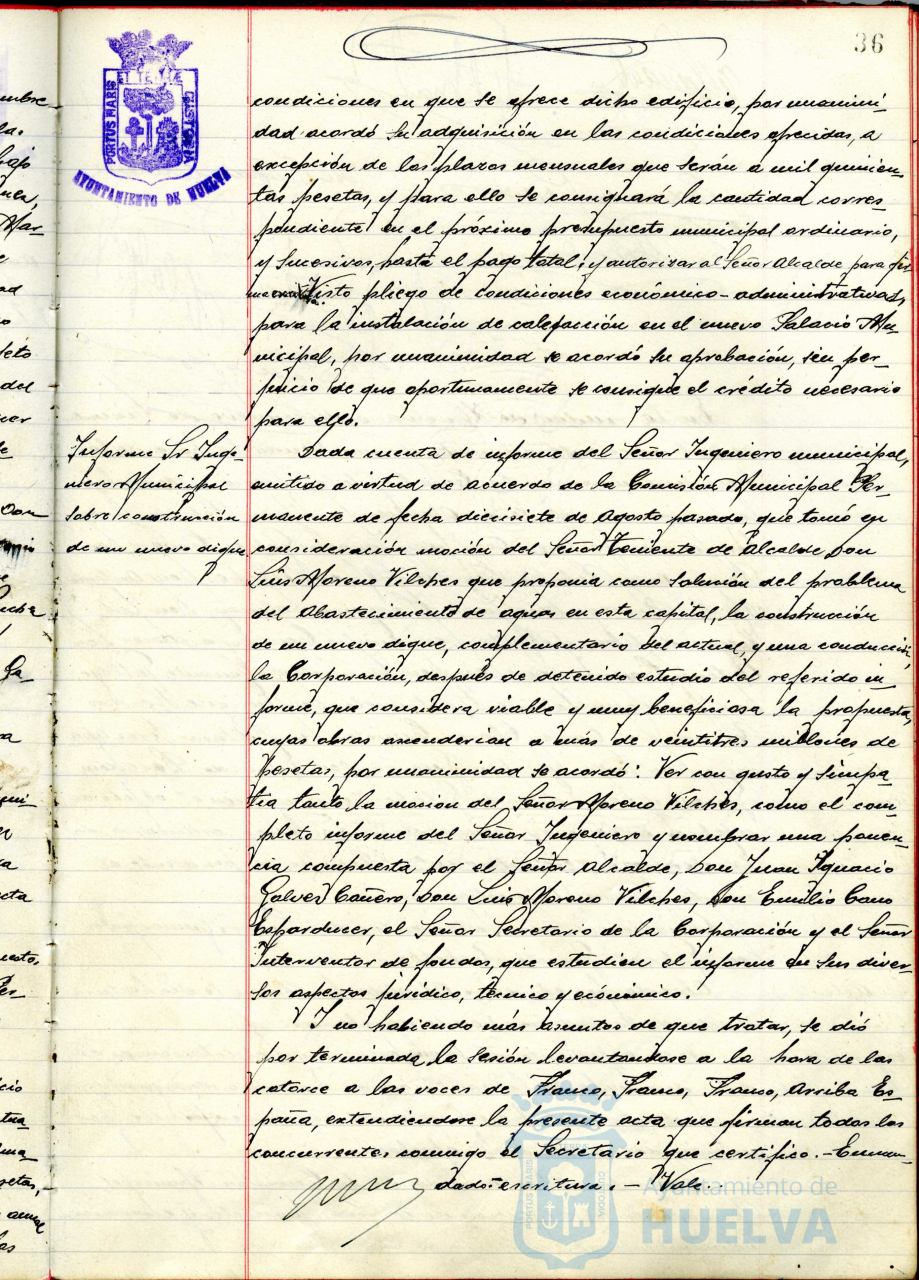 36
PORTUS MARIS ET TERRÆ CUSTODIA
AYUNTAMIENTO DE HUELVA
condiciones en que se ofrece dicho edificio, por unanimi-
dad acordó su adquisición en las condiciones ofrecidas, a
excepción de los plazos mensuales que serán a mil quinien-
tas pesetas, y para ello se consignará la cantidad corres
pondiente en el próximo presupuesto municipal ordinario,
y sucesivos, hasta el pago total; y autorizar al Señor Alcalde para fir
Visto pliego de condiciones económico-administrativas,
para la instalación de calefacción en el nuevo Palacio Mu-
nicipal, por unanimidad se acordó su aprobación, sin per-
juicio de que oportunamente se consigne el crédito necesario
para ello.
Informe Sr Inge-
niero Municipal
sobre construcción
de un nuevo dique
Dada cuenta de informe del Señor Ingeniero municipal,
emitido a virtud de acuerdo de la Comisión Municipal Per-
manente de fecha diecisiete de Agosto pasado, que tomó en
consideración moción del Señor Teniente de Alcalde Don
Luis Moreno Vilches que proponia como solución del problema
del abastecimiento de aguas en esta capital, la construcción
de un nuevo dique, complementario del actual, y una conducción,
la Corporación, después de detenido estudio del referido in-
forme, que considera viable y muy beneficiosa la propuesta,
cuyas obras ascenderian a más de veintitres millones de
pesetas, por unanimidad se acordó: Ver con gusto y simpa-
tia tanto la mocion del Señor Moreno Vilches, como el com-
pleto informe del Señor Ingeniero y nombrar una ponen-
cia compuesta por el Señor Alcalde, Don Juan Ignacio
Galvez Cañero, Don Luis Moreno Vilches, Don Emilio Cano
Esparducer, el Señor Secretario de la Corporación y el Señor
Interventor de fondos, que estudien el informe en sus diver-
sos aspectos jurídico, técnico y económico.
Y no habiendo más asuntos de que tratar, se dió
por terminada la sesión levantandose a la hora de las
catorce a las voces de Franco, Franco, Franco, Arriba Es-
paña, extendiendose la presente acta que firman todos los
concurrentes conmigo el Secretario que certifico. - Enmen-
dado = escritura. - Vale.
Ayuntamiento de
HUELVA